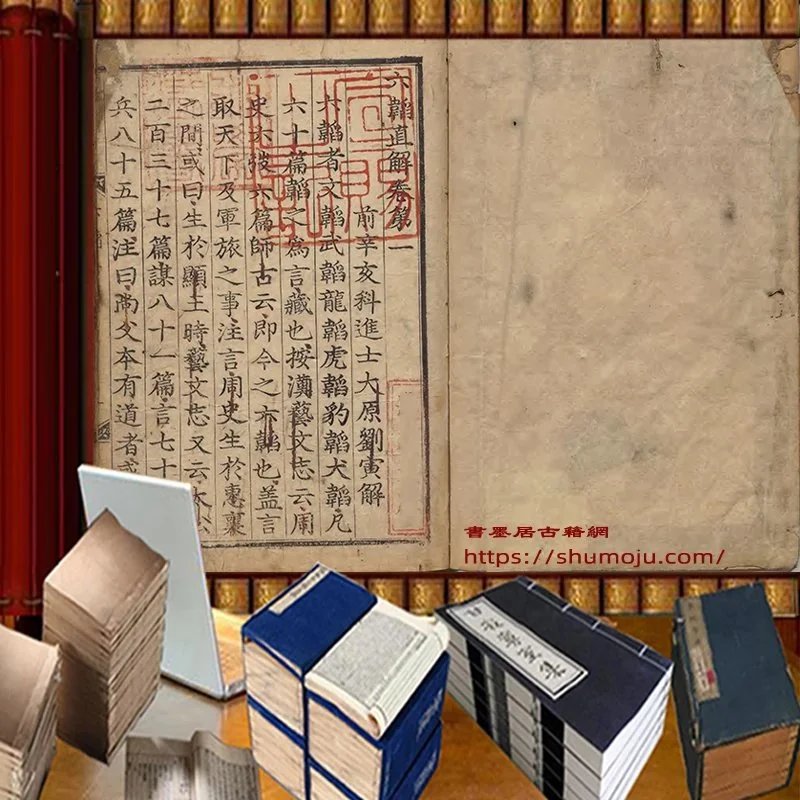 六韜直解卷第一
前辛亥科進士大原劉寅解
六韜者文韜武韜龍韜虎韜豹韜犬韜凡
六十篇韜之為言藏也按漢藝文志云周
史六弢六篇師古云即今之六韜也盖言
取天下及軍旅之事注言周史生於惠襄
之間或曰生於顯王時藝文志又云太公
二百三十七篇謀八十一篇言七十
兵八十五篇注曰尚父本有道者
書墨居古籍網
https://shumoju.com/